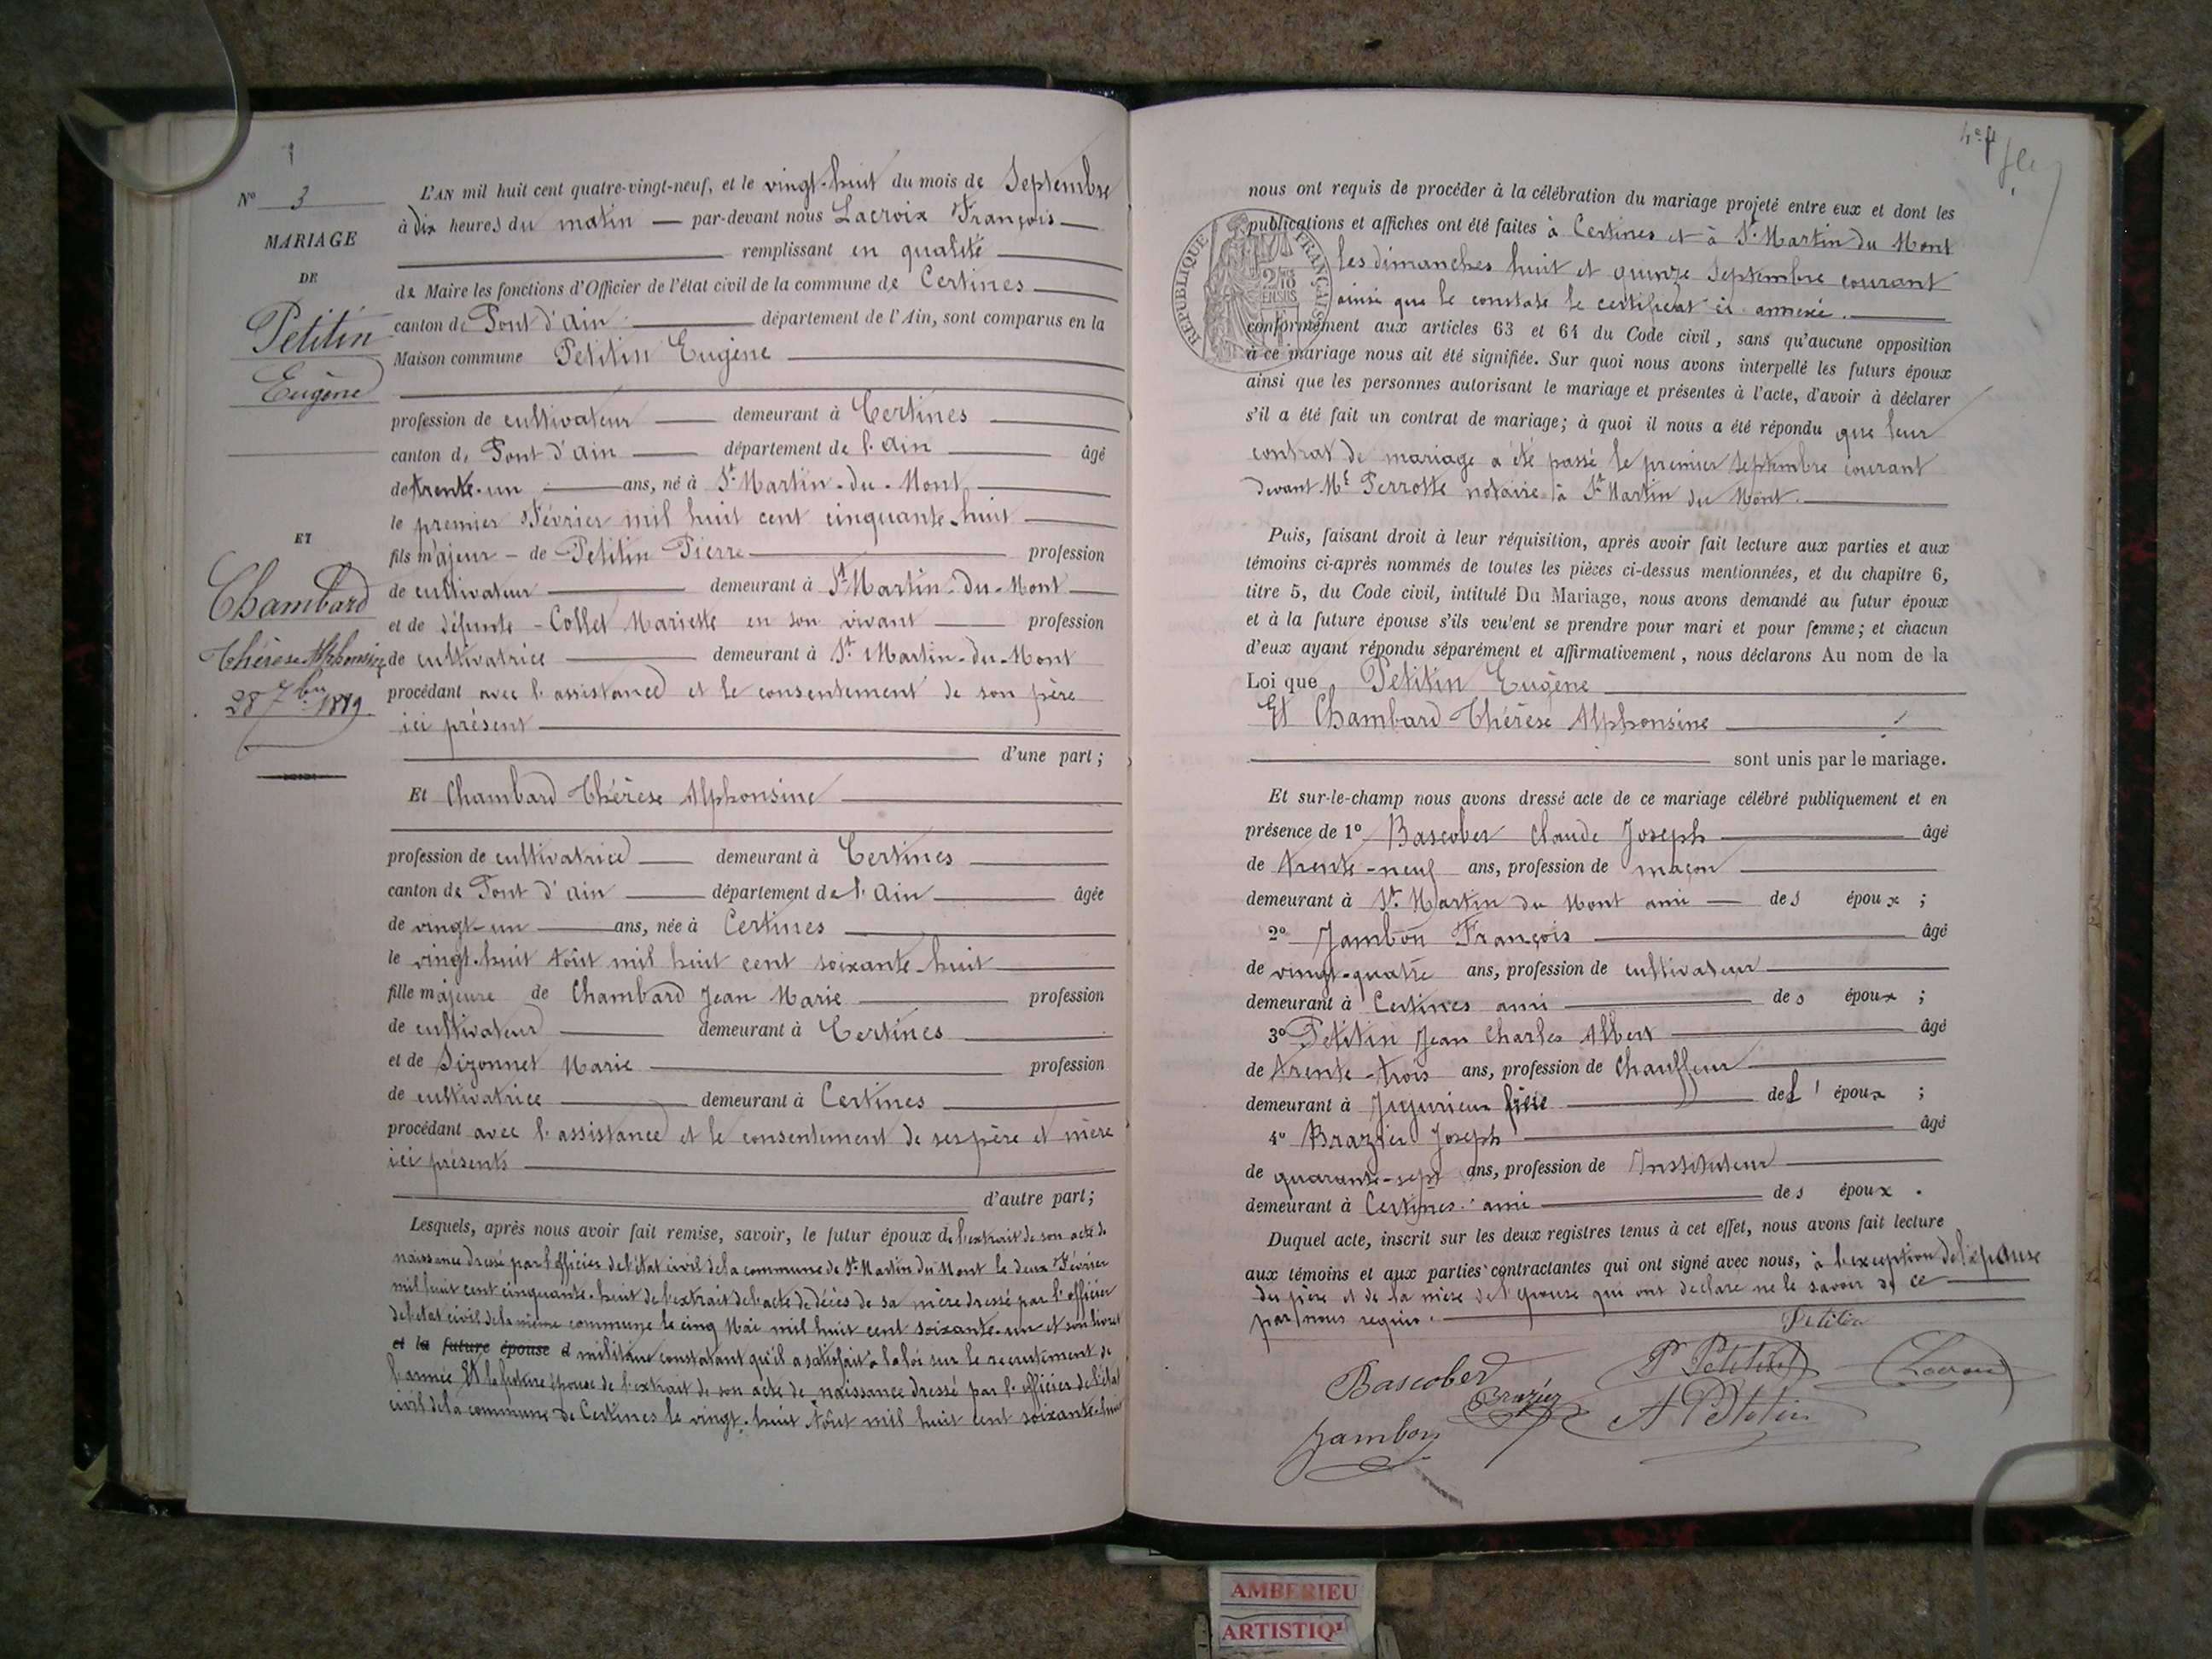 N° 3
MARIAGE
DE
Petitin
Eugène
ET
Chambard
Thérèse Alphonsine
28 7bre 1889
L'AN mil huit cent quatre-vingt-neuf, et le vingt-huit du mois de Septembre
à dix heures du matin — par-devant nous Lacroix François
remplissant en qualité
de Maire les fonctions d'Officier de l'état civil de la commune de Certines
canton de Pont d'Ain département de l'Ain, sont comparus en la
Maison commune Petitin Eugène
profession de cultivateur demeurant à Certines
canton de Pont d'Ain département de l'Ain âgé
de trente-un ans, né à St Martin-du-Mont
le premier Février mil huit cent cinquante-huit
fils majeur - de Petitin Pierre profession
de cultivateur demeurant à St Martin-du-Mont
et de défunte - Collet Mariette en son vivant profession
de cultivatrice demeurant à St Martin-du-Mont
procédant avec l'assistance et le consentement de son père
ici présent
d'une part;
Et Chambard Thérèse Alphonsine
profession de cultivatrice demeurant à Certines
canton de Pont d'Ain département de l'Ain âgée
de vingt-un ans, née à Certines
le vingt-huit Août mil huit cent soixante-huit
fille majeure de Chambard Jean Marie profession
de cultivateur demeurant à Certines
et de Sizonnet Marie profession
de cultivatrice demeurant à Certines
procédant avec l'assistance et le consentement de ses père et mère
ici présents
d'autre part;
Lesquels, après nous avoir fait remise, savoir, le futur époux de l'extrait de son acte de
naissance dressé par l'officier de l'état civil de la commune de St Martin du Mont le deux Février
mil huit cent cinquante-huit de l'extrait de l'acte de décès de sa mère dressé par l'officier
de l'état civil de la même commune le cinq Mai mil huit cent soixante-un et son livret
et la future épouse d militaire constatant qu'il a satisfait à la loi sur le recrutement de
l'armée Et la future épouse de l'extrait de son acte de naissance dressé par l'officier de l'état
civil de la commune de Certines le vingt-huit Août mil huit cent soixante-huit
nous ont requis de procéder à la célébration du mariage projeté entre eux et dont les
publications et affiches ont été faites à Certines et à St Martin du Mont
les dimanches huit et quinze Septembre courant
ainsi que le constate le certificat ci-annexé.
conformément aux articles 63 et 64 du Code civil, sans qu'aucune opposition
à ce mariage nous ait été signifiée. Sur quoi nous avons interpellé les futurs époux
ainsi que les personnes autorisant le mariage et présentes à l'acte, d'avoir à déclarer
s'il a été fait un contrat de mariage; à quoi il nous a été répondu que leur
contrat de mariage a été passé le premier Septembre courant
devant Me Perrotte notaire à St Martin du Mont.
RÉPUBLIQUE FRANÇAISE
Puis, faisant droit à leur réquisition, après avoir fait lecture aux parties et aux
témoins ci-après nommés de toutes les pièces ci-dessus mentionnées, et du chapitre 6,
titre 5, du Code civil, intitulé Du Mariage, nous avons demandé au futur époux
et à la future épouse s'ils veulent se prendre pour mari et pour femme; et chacun
d'eux ayant répondu séparément et affirmativement, nous déclarons Au nom de la
Loi que Petitin Eugène
Et Chambard Thérèse Alphonsine
sont unis par le mariage.
Et sur-le-champ nous avons dressé acte de ce mariage célébré publiquement et en
présence de 1° Bascober Claude Joseph âgé
de trente-neuf ans, profession de maçon
demeurant à St Martin du Mont ami des époux ;
2° Jambon François âgé
de vingt-quatre ans, profession de cultivateur
demeurant à Certines ami des époux ;
3° Petitin Jean Charles Albert âgé
de trente-trois ans, profession de Chauffeur
demeurant à Jujurieux frère de l'époux ;
4° Brazier Joseph âgé
de quarante-sept ans, profession de Instituteur
demeurant à Certines ami des époux .
Duquel acte, inscrit sur les deux registres tenus à cet effet, nous avons fait lecture
aux témoins et aux parties contractantes qui ont signé avec nous, à l'exception de l'épouse
du père et de la mère de l'épouse qui ont déclaré ne le savoir de ce
par nous requis.
Petitin
Bascober Brazier P Petitin Lacroix
Jambon A Petitin
AMBERIEU
ARTISTIQ